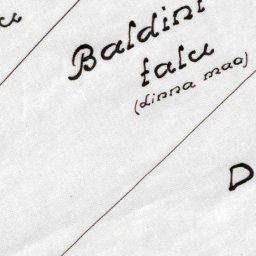 Baldini
falu
(Linna mao)
D